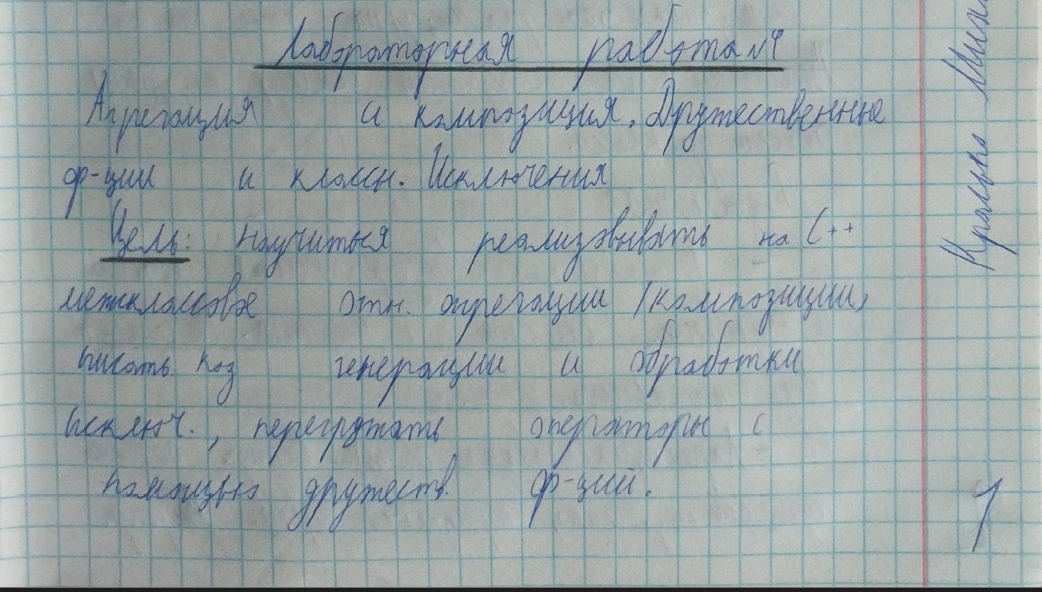 Лабораторная работа №4
Агрегация и композиция. Дружественные
ф-ции и классы. Исключения
Цель: научиться реализовывать на C++
межклассовое отн. агрегации (композиции)
писать код генерации и обработки
исключ., перегружать операторы с
помощью дружеств. ф-ций.
1